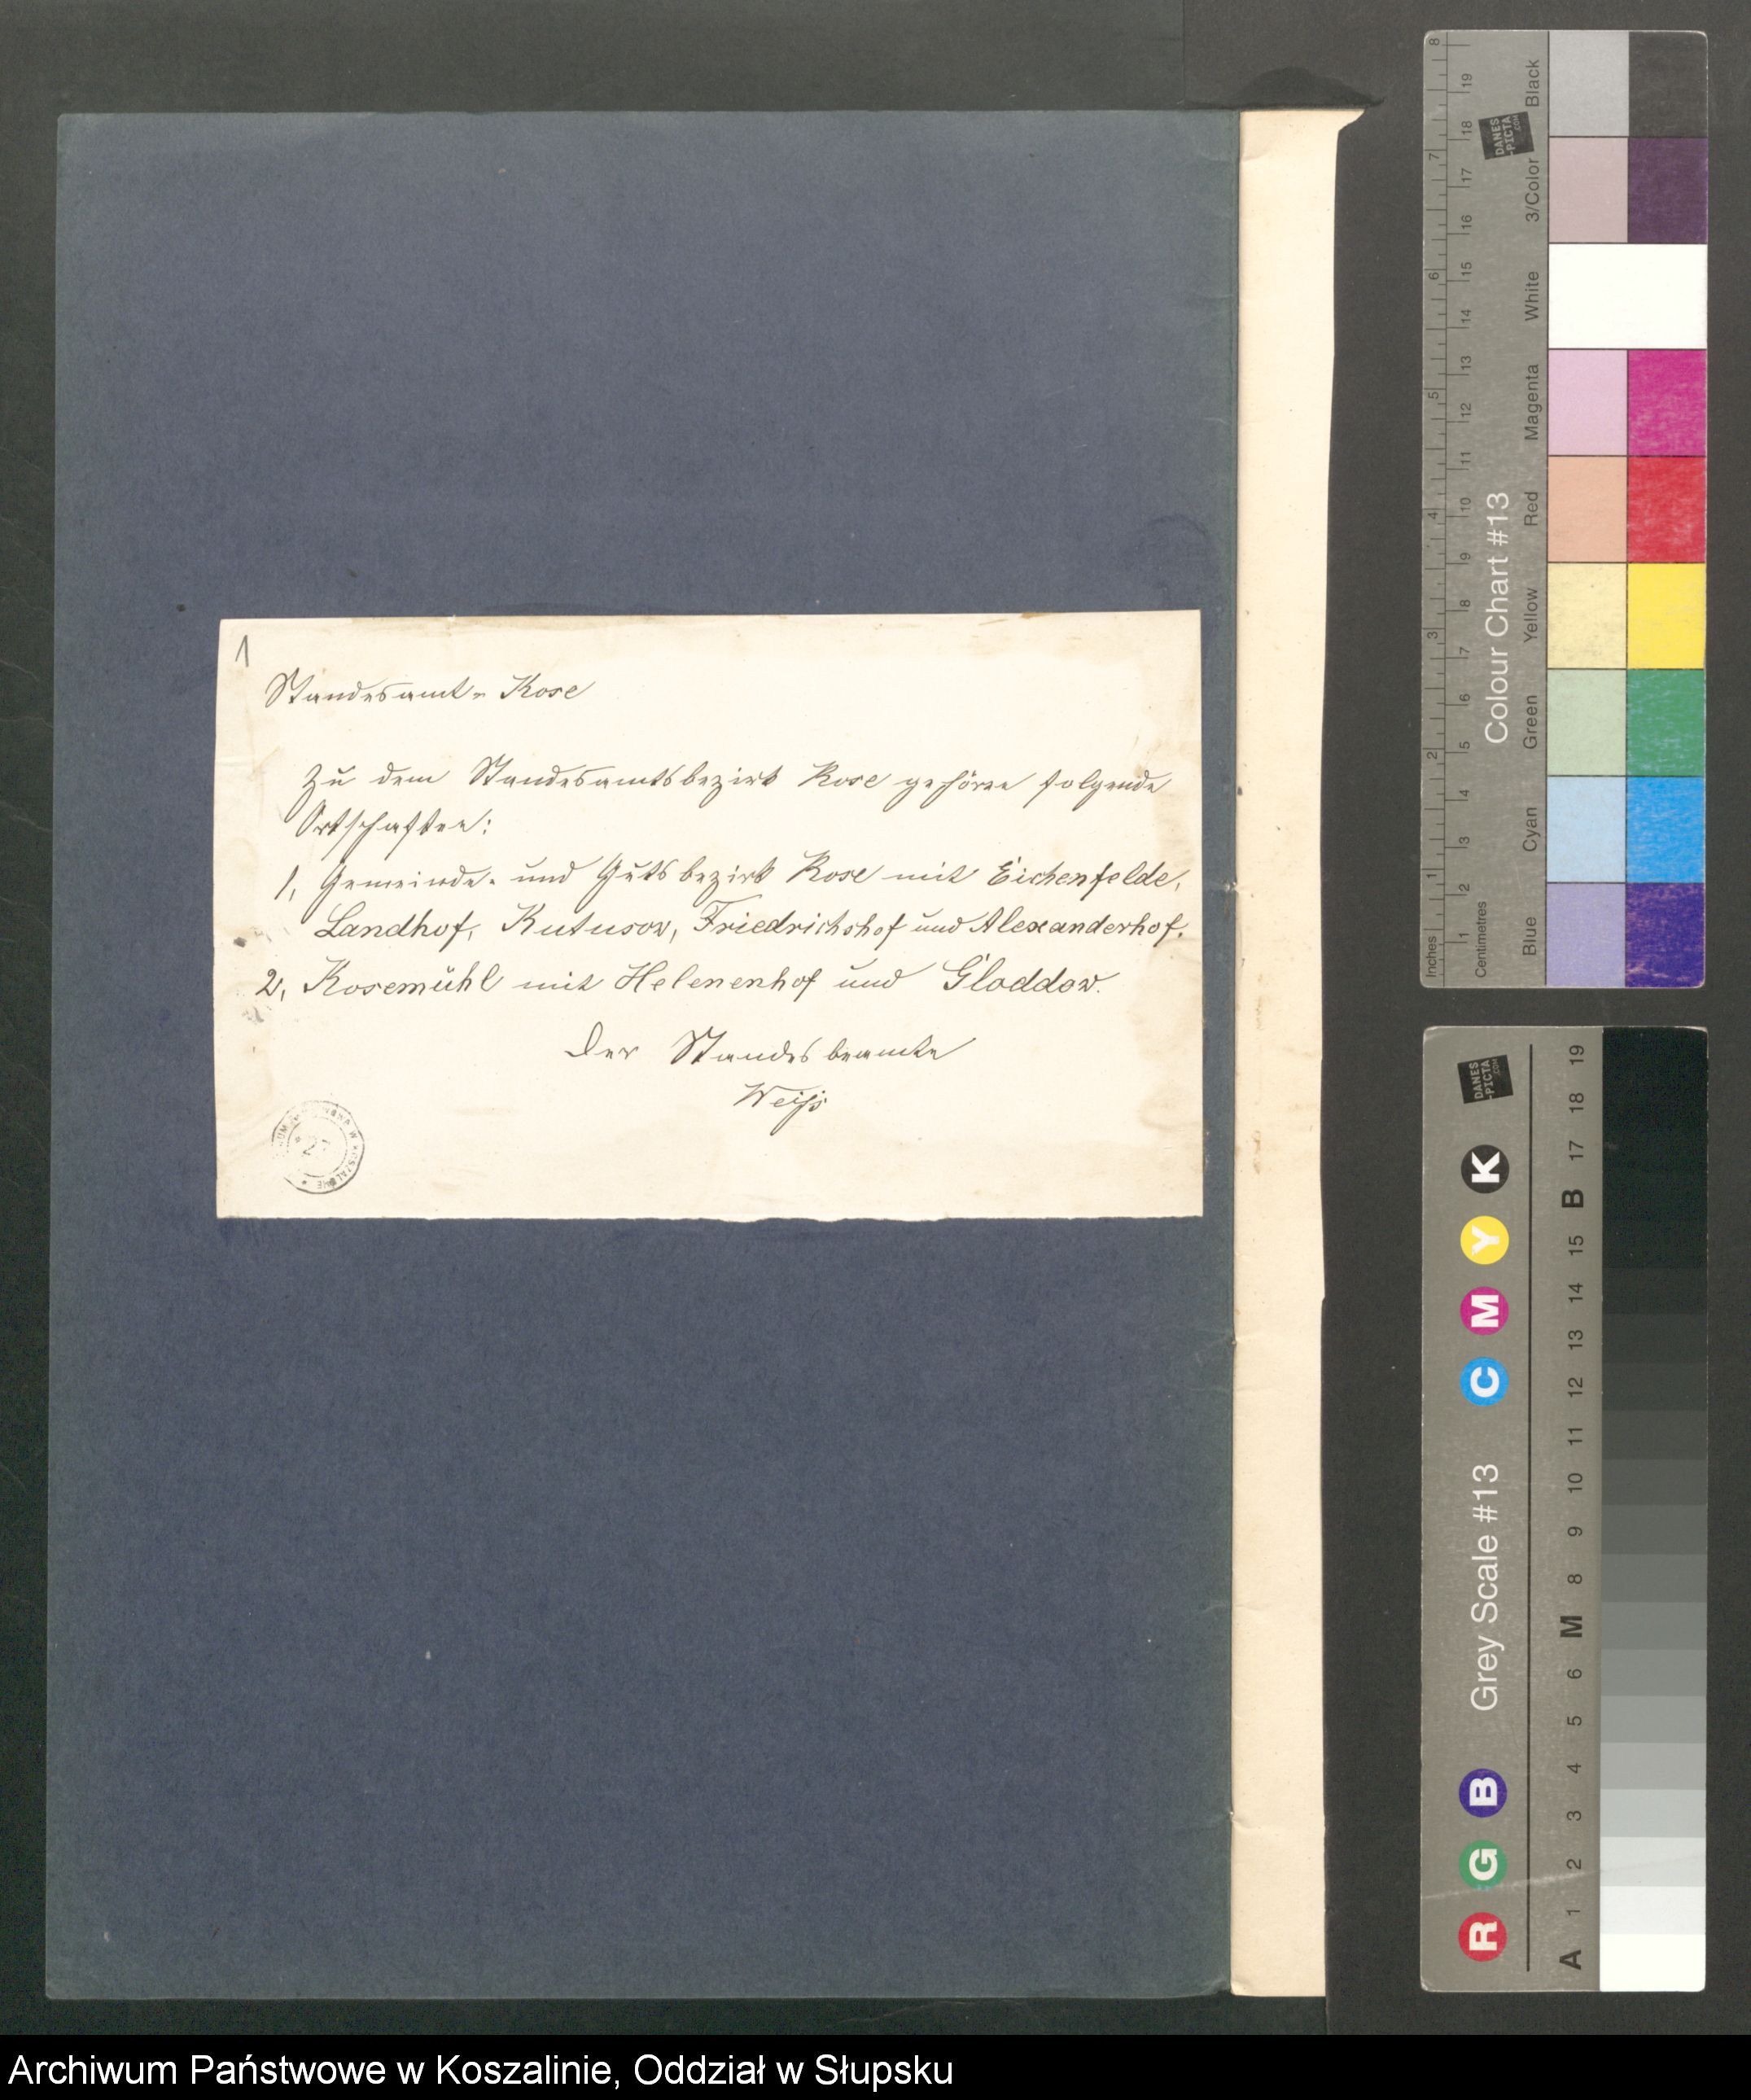 1
Standesamt - Kose
Zu dem Standesamtsbezirk Kose gehören folgende
Ortschaften:
1, Gemeinde- und Gutsbezirk Kose mit Eichenfelde,
Landhof, Kutusow, Friedrichshof und Alexanderhof.
2, Kosemühl mit Helenenhof und Gloddow.
Der Standesbeamte
Weiß
Inches 1 2 3 4 5 6 7 8
Centimetres 1 2 3 4 5 6 7 8 9 10 11 12 13 14 15 16 17 18 19
DANES
-PICTA
.COM
Colour Chart #13
Blue Cyan Green Yellow Red Magenta White 3/Color Black
DANES
-PICTA
.COM
R G B Grey Scale #13 C M Y K
A 1 2 3 4 5 6 M 8 9 10 11 12 13 14 15 B 17 18 19
Archiwum Państwowe w Koszalinie, Oddział w Słupsku